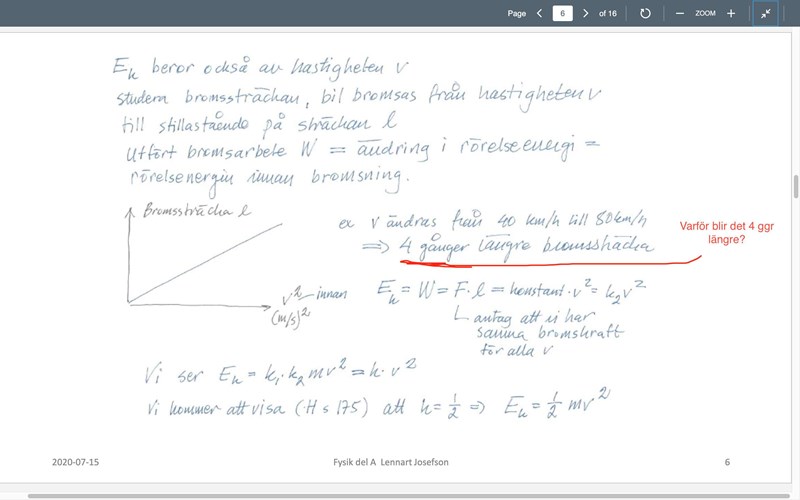 Page 6 of 16 ZOOM
Ek beror också av hastigheten v
studera bromssträckan, bil bromsas från hastigheten v
till stillastående på sträckan l
Utfört bromsarbete W = ändring i rörelseenergi =
rörelsenergin innan bromsning.
Bromssträcka l
v² innan
(m/s)²
ex v ändras från 40 km/h till 80 km/h
⇒ 4 gånger längre bromssträcka
Varför blir det 4 ggr
längre?
Ek = W = F·l = konstant·v² = k₂v²
antag att vi har
samma bromskraft
för alla v
Vi ser Ek = k₁·k₂mv² = k·v²
Vi kommer att visa (H s 175) att k = 1/2 ⇒ Ek = 1/2 mv²
2020-07-15
Fysik del A Lennart Josefson
6